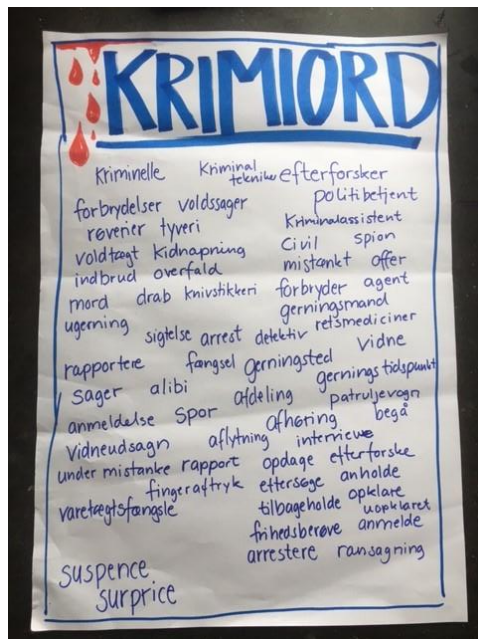 KRIMIORD
Kriminelle Kriminal tekniker efterforsker
forbrydelser voldssager politibetjent
røverier tyveri Kriminalassistent
voldtægt Kidnapning Civil spion
indbrud overfald mistænkt offer
mord drab knivstikkeri forbryder agent
ugerning gerningsmand
sigtelse arrest detektiv retsmediciner
rapportere fængsel gerningsted vidne
sager alibi afdeling gerningstidspunkt
anmeldelse Spor patruljevogn
Vidneudsagn aflytning afhøring begå
interviewe
under mistanke rapport opdage efterforske
fingeraftryk eftersøge anholde
varetægtsfængsle tilbageholde opklare
uopklaret
frihedsberøve anmelde
arrestere ransagning
suspence
surprice